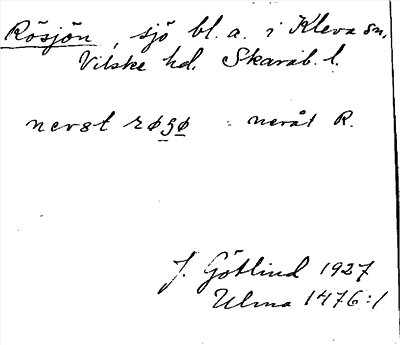 Rösjön, sjö bl. a. i Kleva sn,
Vilske hd. Skarab. l.
neråt R.
J. Götlind 1927
Ulma 1476:1